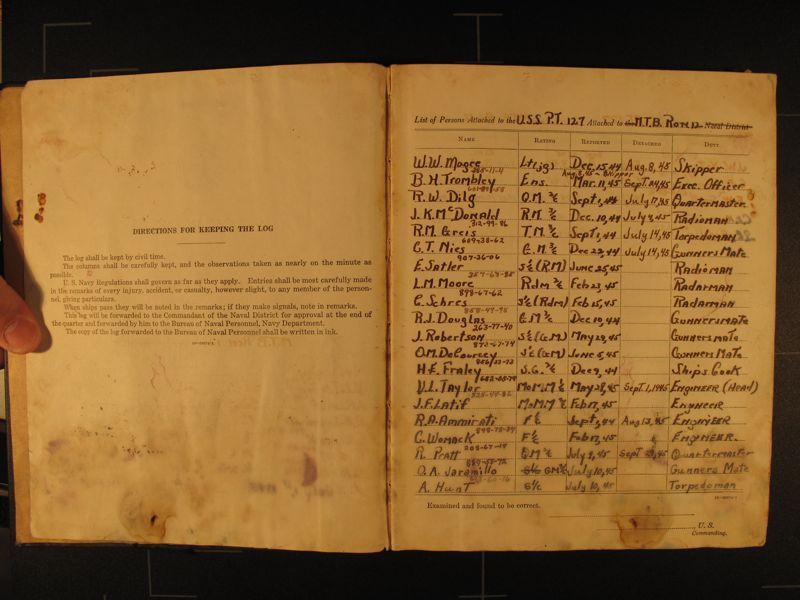 DIRECTIONS FOR KEEPING THE LOG
The log shall be kept by civil time.
The columns shall be carefully kept, and the observations taken as nearly on the minute as
possible.
U. S. Navy Regulations shall govern as far as they apply. Entries shall be most carefully made
in the remarks of every injury, accident, or casualty, however slight, to any member of the person-
nel, giving particulars.
When ships pass they will be noted in the remarks; if they make signals, note in remarks.
This log will be forwarded to the Commandant of the Naval District for approval at the end of
the quarter and forwarded by him to the Bureau of Naval Personnel, Navy Department.
The copy of the log forwarded to the Bureau of Naval Personnel shall be written in ink.
List of Persons Attached to the U.S.S. P.T. 127 Attached to the M.T.B. Ron 12 Naval District
NAME RATING REPORTED DETACHED DUTY
W.W. Magee Lt(jg) Dec. 15, 44 Aug. 8, 45 Skipper
B.H. Trombley Ens. Mar. 11, 45 Sept. 24, 45 Exec. Officer
R.W. Dilg Q.M. 3/c Sept 1, 44 July 17, 45 Quartermaster
J.K. McDonald R.M. 3/c Dec. 10, 44 July 9, 45 Radioman
312-99-86
R.M. Gereis T.M. 3/c Sept 1, 44 July 14, 45 Torpedoman
609-38-62
C.T. Nies G.M. 3/c Dec 22, 44 July 14, 45 Gunners Mate
907-26-06
E. Satler S1/c (RM) June 25, 45 Radioman
L.M. Moore Rdm 3/c Feb 23, 45 Radarman
878-67-62
C. Schres S1/c (Rdm) Feb 15, 45 Radarman
R.J. Douglas G.M. 3/c Dec 10, 44 Gunnersmate
263-77-40
J. Robertson S1/c (GM) May 29, 45 Gunnersmate
O.M. DeCourcey S1/c (GM) June 5, 45 Gunners Mate
H.E. Fraley S.C. 3/c Dec 9, 44 Ships Cook
V.L. Taylor MoM.M 1/c May 28, 45 Sept. 1, 1945 Engineer (Head)
J.F. Latif MoM.M 3/c Feb 17, 45 Engineer
R.A. Ammirati F 1/c Sept 1, 44 Aug 13, 45 Engineer
C. Womack F 1/c Feb 17, 45 Engineer
R. Pratt Q.M 3/c July 9, 45 Quartermaster
O.A. Jaramillo S1/c GM 3/c July 10, 45 Gunners Mate
A. Hunt S1/c July 10, 45 Torpedoman
Examined and found to be correct.
U. S.
Commanding.